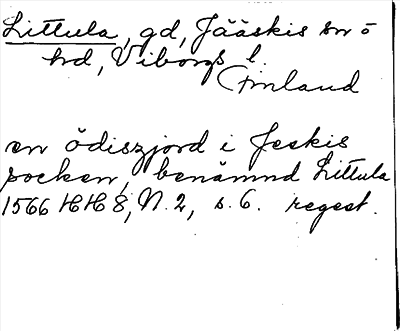 Littula, gd, Jääskis sn o
hrd, Viborgs l.
Finland
en ödiszjord i Jeskis
socken, benämnd Littula
1566 HH 8, N. 2, s. 6. regest.